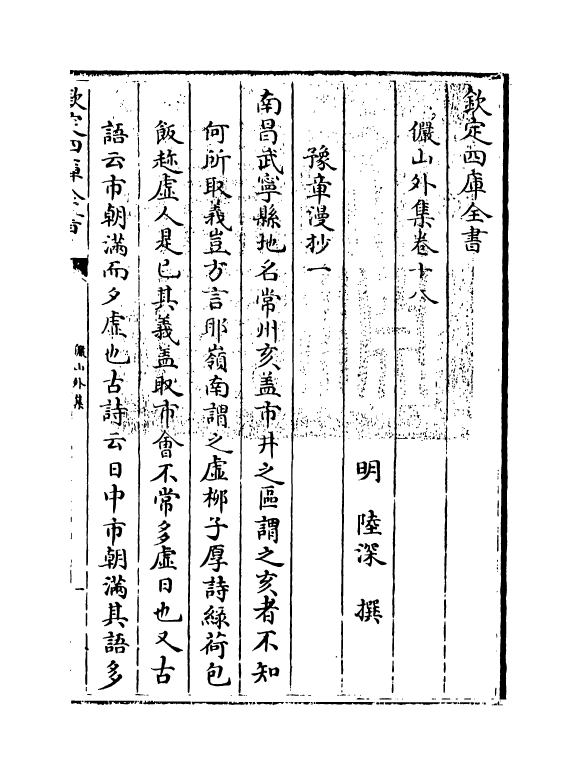 欽定四庫全書
儼山外集卷十八
明 陸深 撰
豫章漫抄一
南昌武寧縣地名常州亥盖市井之區謂之亥者不知
何所取義豈方言耶嶺南謂之虛栁子厚詩緑荷包
飯趂虛人是已其義盖取市會不常多虛日也又古
語云市朝滿而夕虛也古詩云日中市朝滿其語多
欽定四庫全書
儼山外集
一